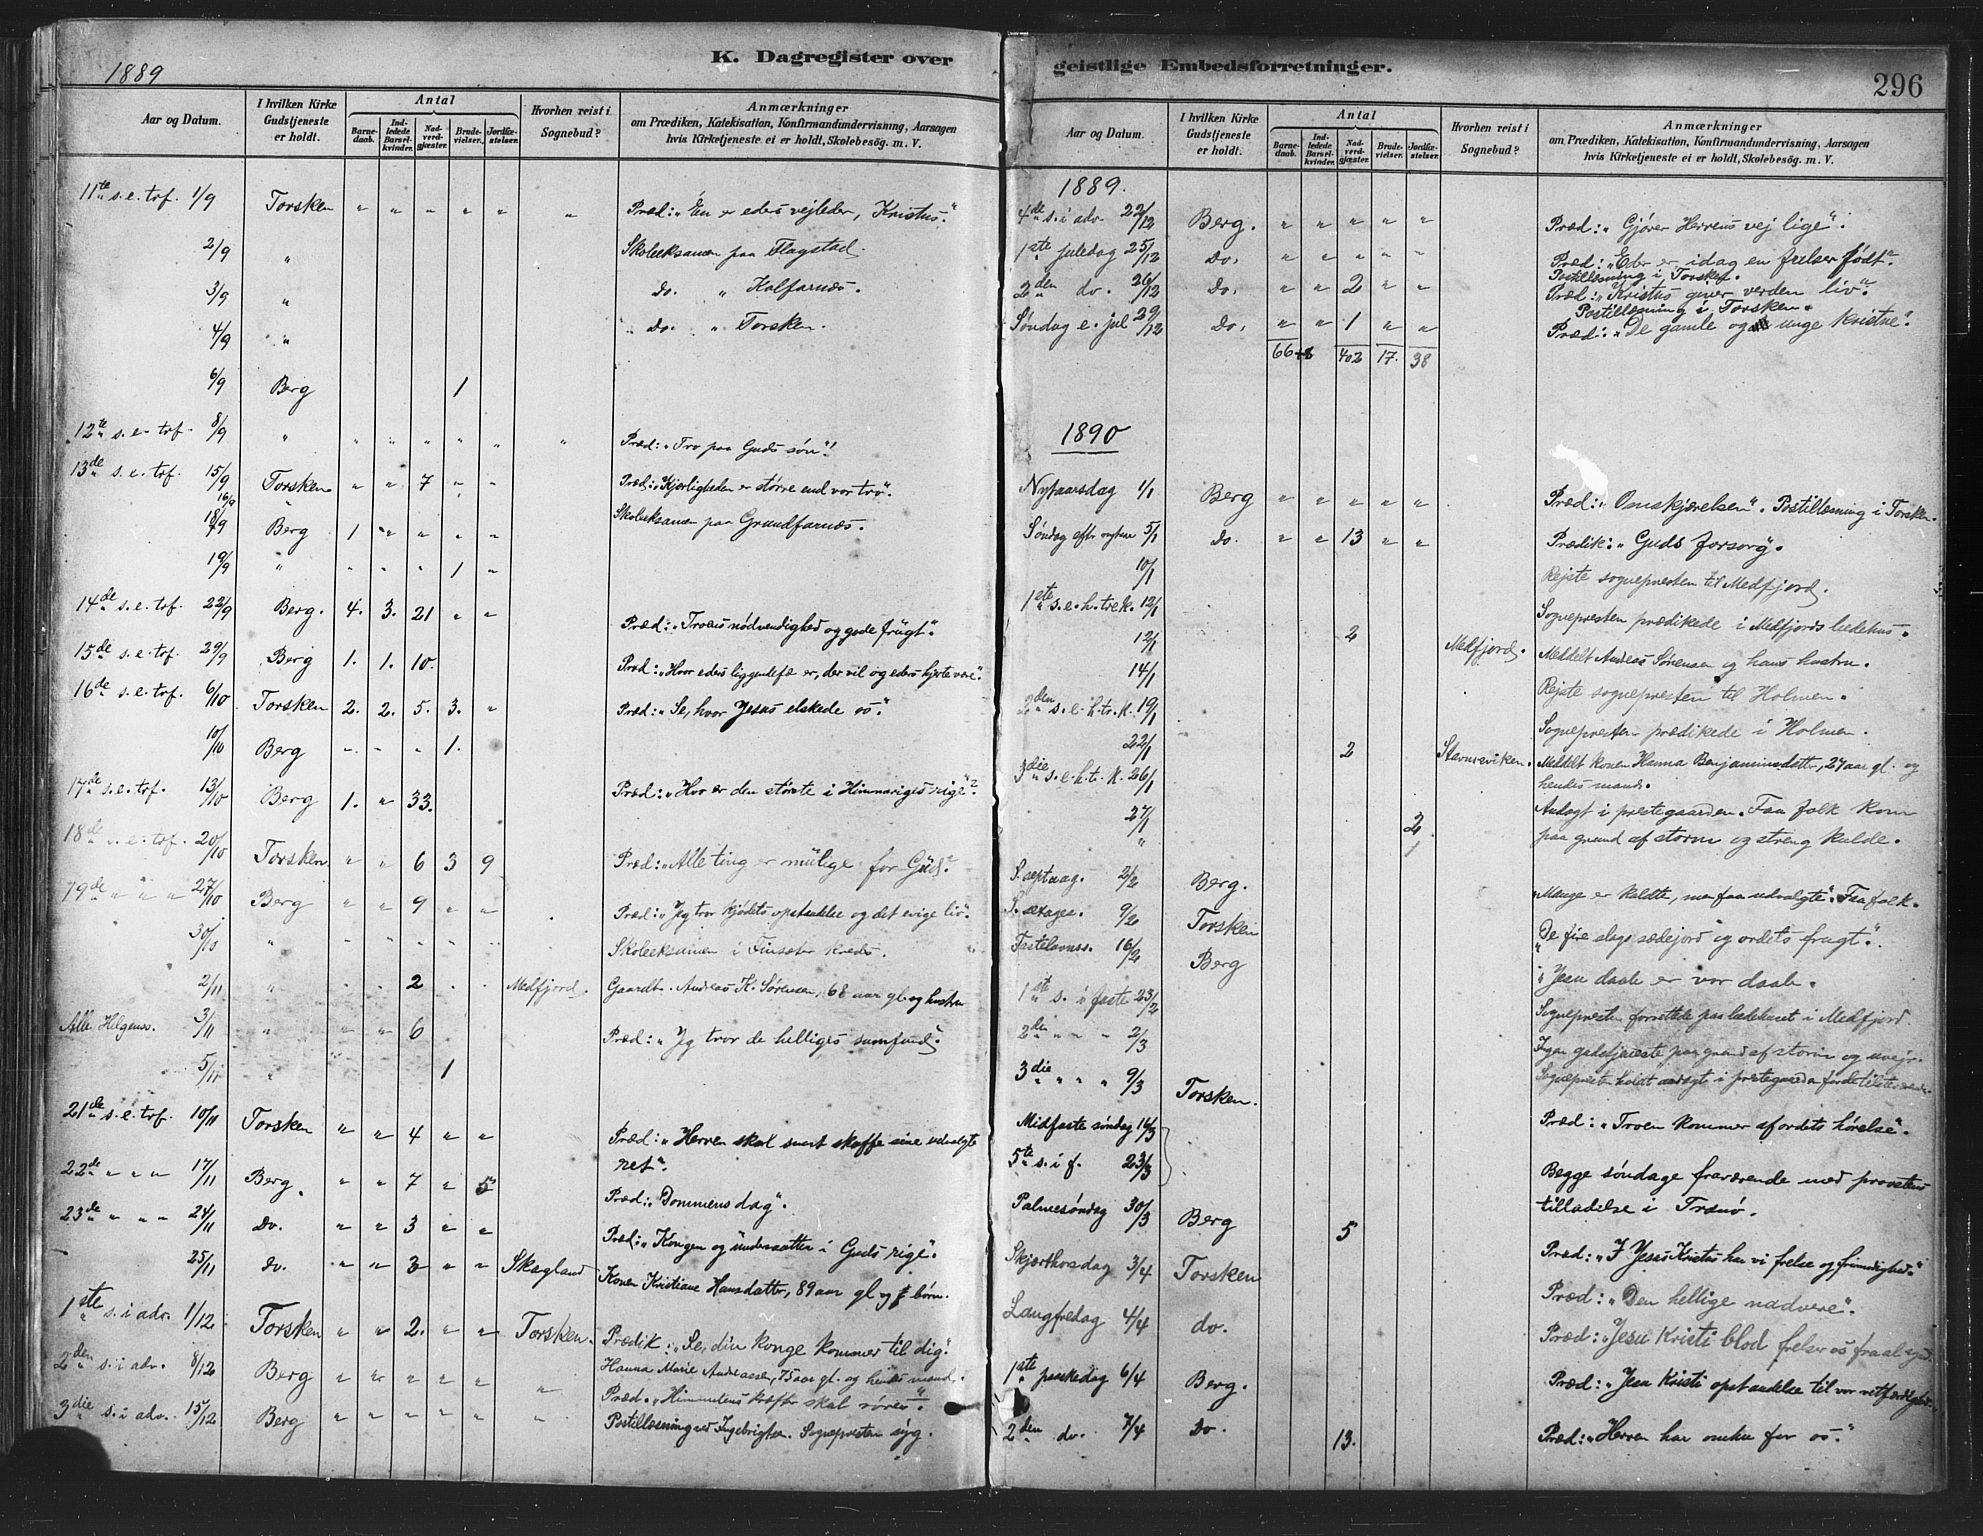 K. Dagregister over
1889
Aar og Datum.
I hvilken Kirke Gudstjeneste er holdt.
Antal
Barnedaab.
Indledede Barselkvinder.
Nadverdgjæster.
Brudevielser.
Jordfæstelser.
Hvorhen reist i Sognebud?
Anmærkninger
om Prædiken, Katekisation, Konfirmandundervisning, Aarsagen
hvis Kirketjeneste ei er holdt, Skolebesøg. m. V.
11te s. e. trf. 1/9 Torsken " " " " " " Præd: "En er eders vejleder, Kristus."
2/9 " Skoleeksamen paa Flagstad.
3/9 " Do. " Kalfarnæs.
4/9 " Do. " Torsken.
6/9 Berg 1
12te s. e. trf. 8/9 " " " " " " " Præd: "Tro paa Guds søn"!
13de s. e. trf. 15/9 Torsken " " 7 " " Præd: "Kjærligheden er større end vor tro".
16/9 " Skoleeksamen paa Grundfarnæs.
18/9 Berg 1 " " " "
19/9 " " " " 1 "
14de s. e. trf. 22/9 Berg. 4. 3. 21 " " Præd: "Troens nødvendighed og gode frugt".
15de s. e. trf. 29/9 Berg 1. 1. 10. Præd: "Hvor eders liggendefæ er, der vil og eders hjerte være".
16de s. e. trf. 6/10 Torsken 2. 2. 5. 3. " Præd: "Se, hvor Jesus elskede os".
10/10 Berg " " " 1.
17de s. e. trf. 13/10 Berg 1. " 33. Præd: "Hvo er den største i Himmeriges rige"?
18de s. e. trf. 20/10 Torsken " " 6 3 9 Præd: "Alle ting er mulige for Gud".
19de " " " 27/10 Berg " " 9 " " Præd: "Jeg tror kjødets opstandelse og det evige liv".
30/10 " " " " " " Skoleeksamen i Finsæter kreds.
2/11 " " " 2 . . Medfjord. Gaardb. Andreas K. Sørensen, 68 aar gl. og hustru
Alle Helgenss. 3/11 " " " 6 Præd: "Jeg tror de helliges samfund".
5/11 " 1
21de s. e. trf. 10/11 Torsken " " 4 " " Præd: "Herren skal snart skaffe sine udvalgte
ret".
22de " " " 17/11 Berg. " " 7 " 5 Præd: "Dommens dag".
23de " " " 24/11 Do. " " 3 " " Præd: "Kongen og undersatter i Guds rige".
25/11 do. " " 3 " " Skagland Konen Kristiane Hansdatter, 89 aar gl og børn.
1ste s. i adv. 1/12 Torsken " " 2. " " Torsken. Prædik: "Se, din konge kommer til dig".
Hanna Marie Andreassen, 75 aar gl. og hendes mand.
2den s. i adv. 8/12 Berg " " " " " " Præd. "Himmelens kræfter skal røres".
3die s. i adv. 15/12 Berg " " " " " " Postillæsning ved Ingebrigtsen. Sognepresten syg.
geistlige Embedsforretninger.
296
Aar og Datum.
I hvilken Kirke Gudstjeneste er holdt.
Antal
Barnedaab.
Indledede Barselkvinder.
Nadverdgjæster.
Brudevielser.
Jordfæstelser.
Hvorhen reist i Sognebud?
Anmærkninger
om Prædiken, Katekisation, Konfirmandundervisning, Aarsagen
hvis Kirketjeneste ei er holdt, Skolebesøg. m. V.
1889.
4de s. i adv. 22/12 Berg. " " " " " Præd: "Gjører Herrens vej lige".
1ste juledag 25/12 Do. " " " " " Præd: "Eder er idag en frelser født".
Postillæsning i Torsken.
2den do. 26/12 Do. " " 2 " " Præd: "Kristus giver verden liv".
Postillæsning i Torsken.
Søndag e. jul 29/12 Do. " " 1 " " Præd: "De gamle og unge kristne".
66+8 402 17. 38
1890
Nytaarsdag 1/1 Berg " " " " " Præd: "Omskjærelsen". Postillæsning i Torsken.
Søndag eftr nytaar 5/1 Do. " " 13 " " Prædik: "Guds forsorg".
10/1 Rejste sognepresten til Medfjord.
1ste s. e. h. trek. 12/1 Sognepresten prædikede i Medfjords bedehus.
12/1 2 Medfjord. Meddelt Andreas Sørensen og hans hustru.
14/1 Rejste sognepresten til Holmen.
2den s. e. h. tr. k. 19/1 Sognepresten prædikede i Holmen.
22/1 2 Stavnesviken. Meddelt konen Hanna Benjaminsdatter, 27 aar gl. og
hendes mand.
3die s. e. h. t. k. 26/1 Andagt i prestegaarden. Faa folk kom
27/1 2 paa grund af storm og streng kulde.
" 1
S. septuag. 2/2 Berg. "Mange er kaldte, men faa udvalgte". Faa folk.
S. sexages. 9/2 Torsken "De fire slags sædejord og ordets frugt".
Fastelavnss. 16/2 Berg "Jesu daab er vor daab.
1ste s. i faste 23/2 Sognepresten forrettede paa bedehuset i Medfjord.
2den " " " 2/3 Ingen gudstjeneste paa grund af storm og uvejr.
Sognepresten holdt andagt i prestegaarden for de tilstedeværende.
3die " " " 9/3 Torsken. Præd: "Troen kommer af ordets hørelse".
Midfaste søndag 16/3
5te s. i f. 23/3 Begge søndage fraværende med provstens
tilladelse i Tranø.
Palmesøndag 30/3 Berg 5 Præd: "I Jesus Kristus har vi frelse og frimodighed."
Skjærthorsdag 3/4 Torsken Præd: "Den hellige nadvere".
Langfredag 4/4 do. Præd: "Jesu Kristi blod frelser os fra al synd.
1ste paaskedag 6/4 Berg. Præd: "Jesu Kristi opstandelse til vor retfærdighed.
2den do. 7/4 Do. 13. Præd: "Herren har omhu for os."